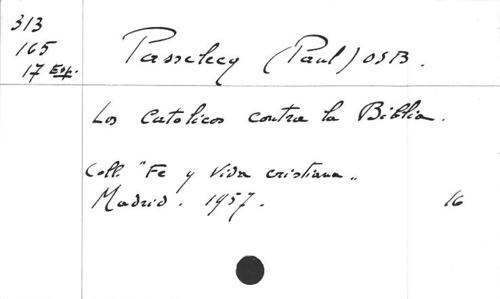 313
165
17 Esp.
Passelecq (Paul) OSB.
Los Catolicos contra la Biblia.
Coll. "Fe y Vida cristiana"
Madrid. 1957. 16